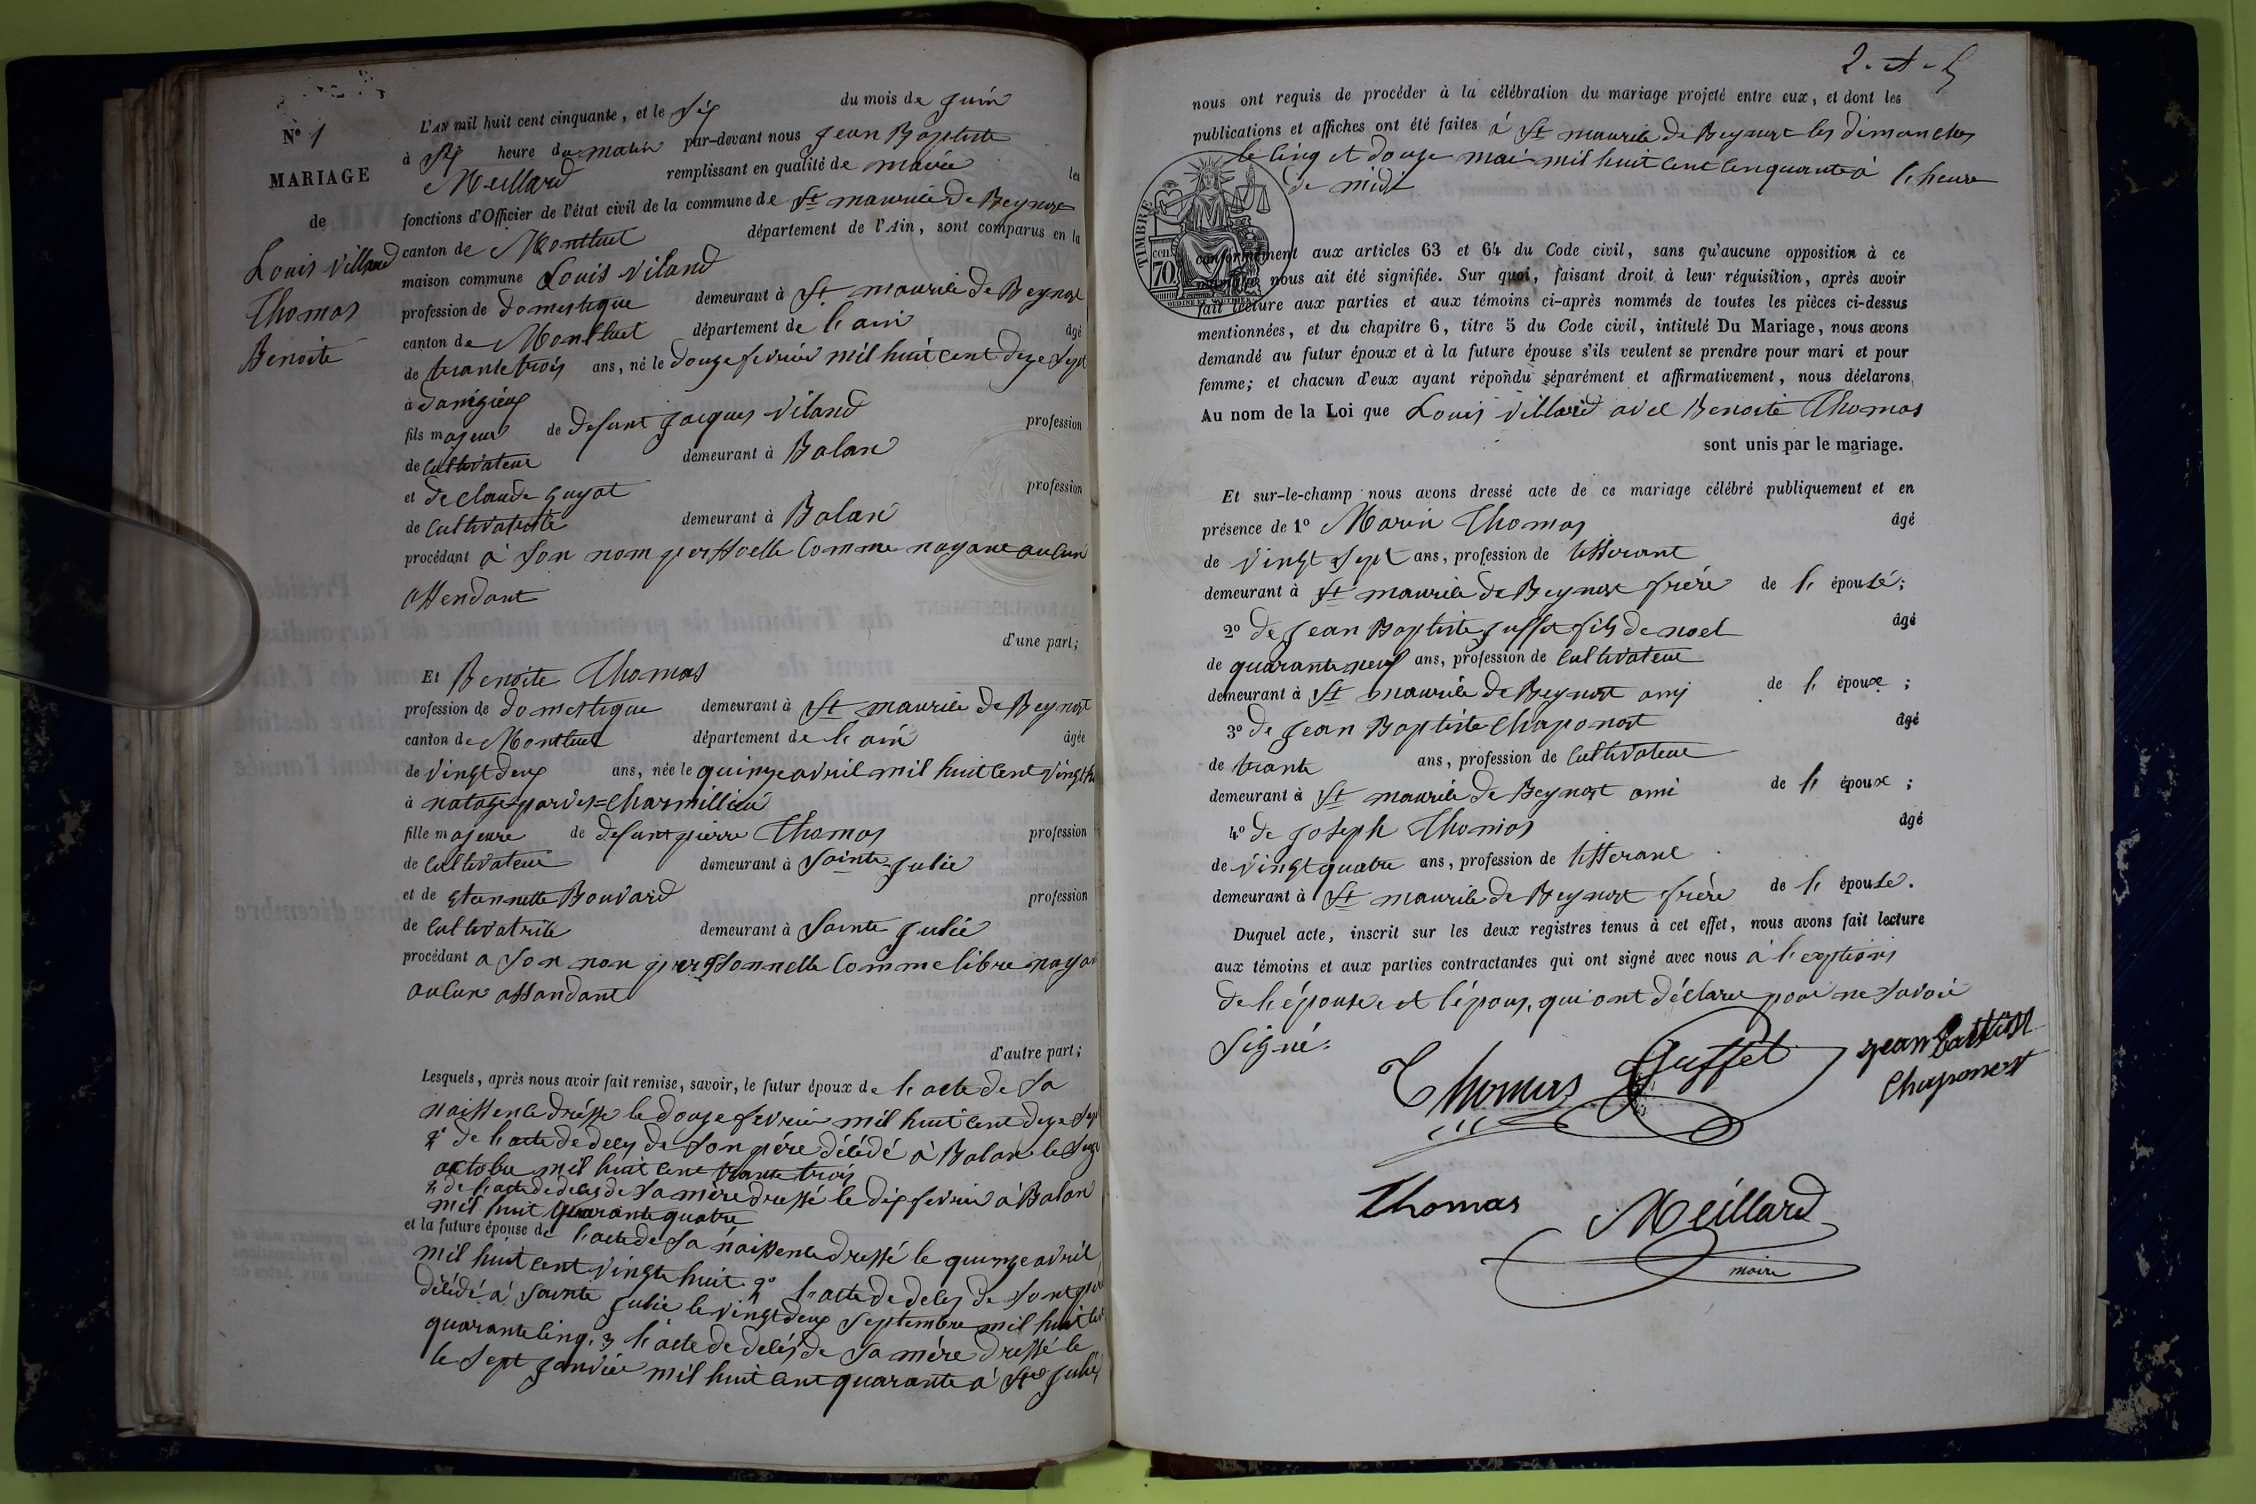 N° 1
MARIAGE
de
Louis Villard
Thomas
Benoite
L'AN mil huit cent cinquante, et le six du mois de juin
à six heure du matin par-devant nous Jean Baptiste
Meillard remplissant en qualité de maire les
fonctions d'Officier de l'état civil de la commune de St maurice De Beynost
canton de Montluel département de l'Ain, sont comparus en la
maison commune Louis Vilard
profession de domestique demeurant à St maurice De Beynost
canton de Montluel département de l'ain âgé
de trante trois ans, né le douze fevrier mil huit cent dize sept
à
fils majeur de defunt jacques Vilard profession
de Cultivateur demeurant à Balan
et de claude guyot profession
de Cultivatrice demeurant à Balan
procédant à son nom comme nayant aucun
assendant
d'une part;
Et Benoite Thomas
profession de domestique demeurant à St maurice De Beynost
canton de Montluel département de l'ain âgée
de vingt deux ans, née le quinze avril mil huit cent vingt
à
fille majeure de defunt pierre Thomas profession
de Cultivateur demeurant à Sainte julie
et de Bouvard profession
de Cultivatrice demeurant à Sainte julie
procédant a son non personnelle Comme libre
aucun assandant
d'autre part;
Lesquels, après nous avoir fait remise, savoir, le futur époux de l'acte de sa
naissence le douze fevrier mil huit cent dize sept
2° de l'acte de deces de son pére décédé à Balan le
octobre mil huit cent trante trois
3 de l'acte de deces de sa mère dressé le dix fevrier à Balan
mil huit quarante quatre
et la future épouse de l'acte de sa naissence dressé le quinze avril
mil huit cent vingt huit 2° l'acte de deces de
décédé à Sainte julie le vingt deux septembre mil huit
quarante cinq, 3 l'acte de decés de sa mére dressé le
le sept janvier mil huit cent quarante à Ste julie
2.
nous ont requis de procéder à la célébration du mariage projeté entre eux, et dont les
publications et affiches ont été faites à St maurice De Beynost les dimanches
le cinq et douze mai mil huit cent cinquante à l'heure
de midi
TIMBRE
70
conformément aux articles 63 et 64 du Code civil, sans qu'aucune opposition à ce
mariage nous ait été signifiée. Sur quoi, faisant droit à leur réquisition, après avoir
fait lecture aux parties et aux témoins ci-après nommés de toutes les pièces ci-dessus
mentionnées, et du chapitre 6, titre 5 du Code civil, intitulé Du Mariage, nous avons
demandé au futur époux et à la future épouse s'ils veulent se prendre pour mari et pour
femme; et chacun d'eux ayant répondu séparément et affirmativement, nous déclarons,
Au nom de la Loi que Louis Villard avec Benoite Thomas
sont unis par le mariage.
Et sur-le-champ nous avons dressé acte de ce mariage célébré publiquement et en
présence de 1° Marin Thomas âgé
de vingt sept ans, profession de tisserant
demeurant à St maurice De Beynost frére de l'épouse;
2° de Jean Baptiste juffet fils de noel âgé
de quarante neuf ans, profession de Cultivateur
demeurant à St maurice De Beynost ami de l'époux;
3° de Jean Baptiste Chaponost âgé
de trante ans, profession de Cultivateur
demeurant à St maurice De Beynost ami de l'époux;
4° de joseph Thomas âgé
de vingt quatre ans, profession de tisserant
demeurant à St maurice De Beynost frère de l'épouse.
Duquel acte, inscrit sur les deux registres tenus à cet effet, nous avons fait lecture
aux témoins et aux parties contractantes qui ont signé avec nous à
de l'épouse et l'époux, qui ont déclare pour ne savoir
signé.
Thomas Juffet jean batiste
Chaponost
Thomas Meillard
maire